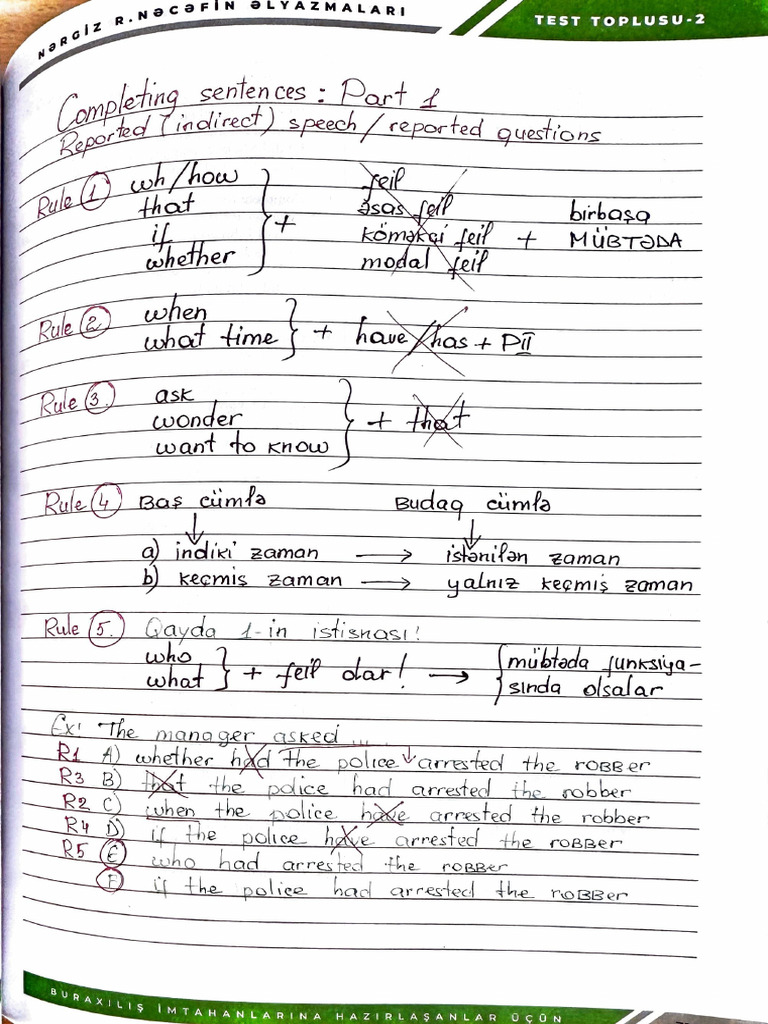 NƏRGİZ R.NƏCƏFİN ƏLYAZMALARI
TEST TOPLUSU-2
Completing sentences: Part 1
Reported (indirect) speech / reported questions
Rule 1 wh/how } + feil
that əsas feil birbaşa
if köməkçi feil + MÜBTƏDA
whether modal feil
Rule 2. when } + have/has + PII
what time
Rule 3. ask } + that
wonder
want to know
Rule 4 Baş cümlə Budaq cümlə
a) indiki zaman → istənilən zaman
b) keçmiş zaman → yalnız keçmiş zaman
Rule 5. Qayda 1-in istisnası!
who } + feil olar! → { mübtəda funksiya-
what sında olsalar
Ex: The manager asked ...
R1 A) whether had the police arrested the robber
R3 B) that the police had arrested the robber
R2 C) when the police have arrested the robber
R4 D) if the police have arrested the robber
R5 E who had arrested the robber
F if the police had arrested the robber
BURAXILIŞ İMTAHANLARINA HAZIRLAŞANLAR ÜÇÜN